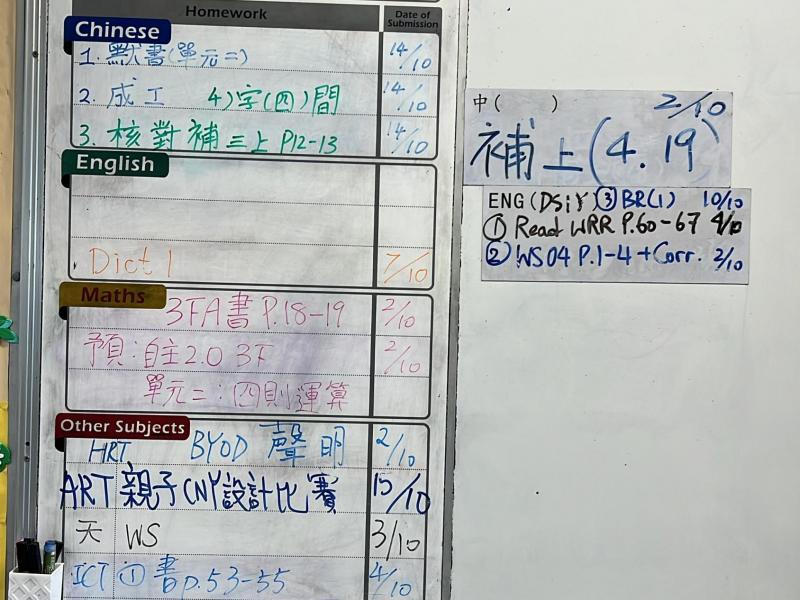 Homework Date of Submission
Chinese
1. 默書(單元二) 14/10
2. 成工 4)字(四)間 14/10
3. 核對補三上 P12-13 14/10
English
Dict 1 7/10
Maths
3FA書 P.18-19 2/10
預:自主2.0 3F 2/10
單元二:四則運算
Other Subjects
HRT BYOD 聲明 2/10
ART 親子CNY設計比賽 15/10
天 WS 3/10
ICT ① 書p.53-55 4/10
中( ) 2/10
補上(4.19)
ENG (DSiY) ③ BR(1) 10/10
① Read WRR P.60-67 4/10
② WS04 P.1-4 + Corr. 2/10